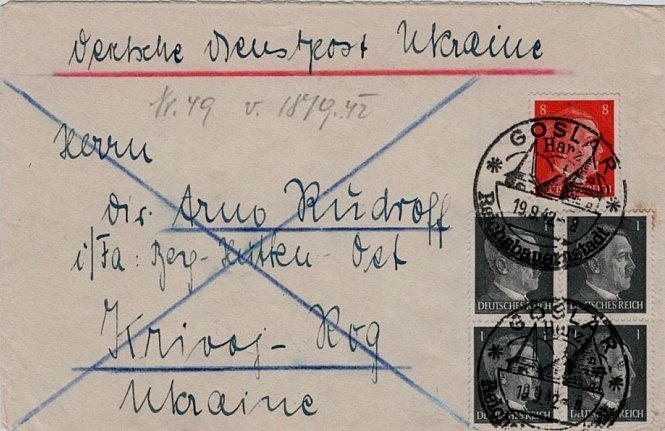 Deutsche Dienstpost Ukraine
Nr. 49 v. 18/9.42
Herrn
Dir. Arno Rudroff
i/Fa: Berg-Hütten-Ost
Krivoj-Rog
Ukraine
8 8
DEUTSCHES REICH
GOSLAR
Harz
19.9.42-8
Reichsbauernstadt
1 1
DEUTSCHES REICH DEUTSCHES REICH
1
GOSLAR
Harz
19.9.42-8